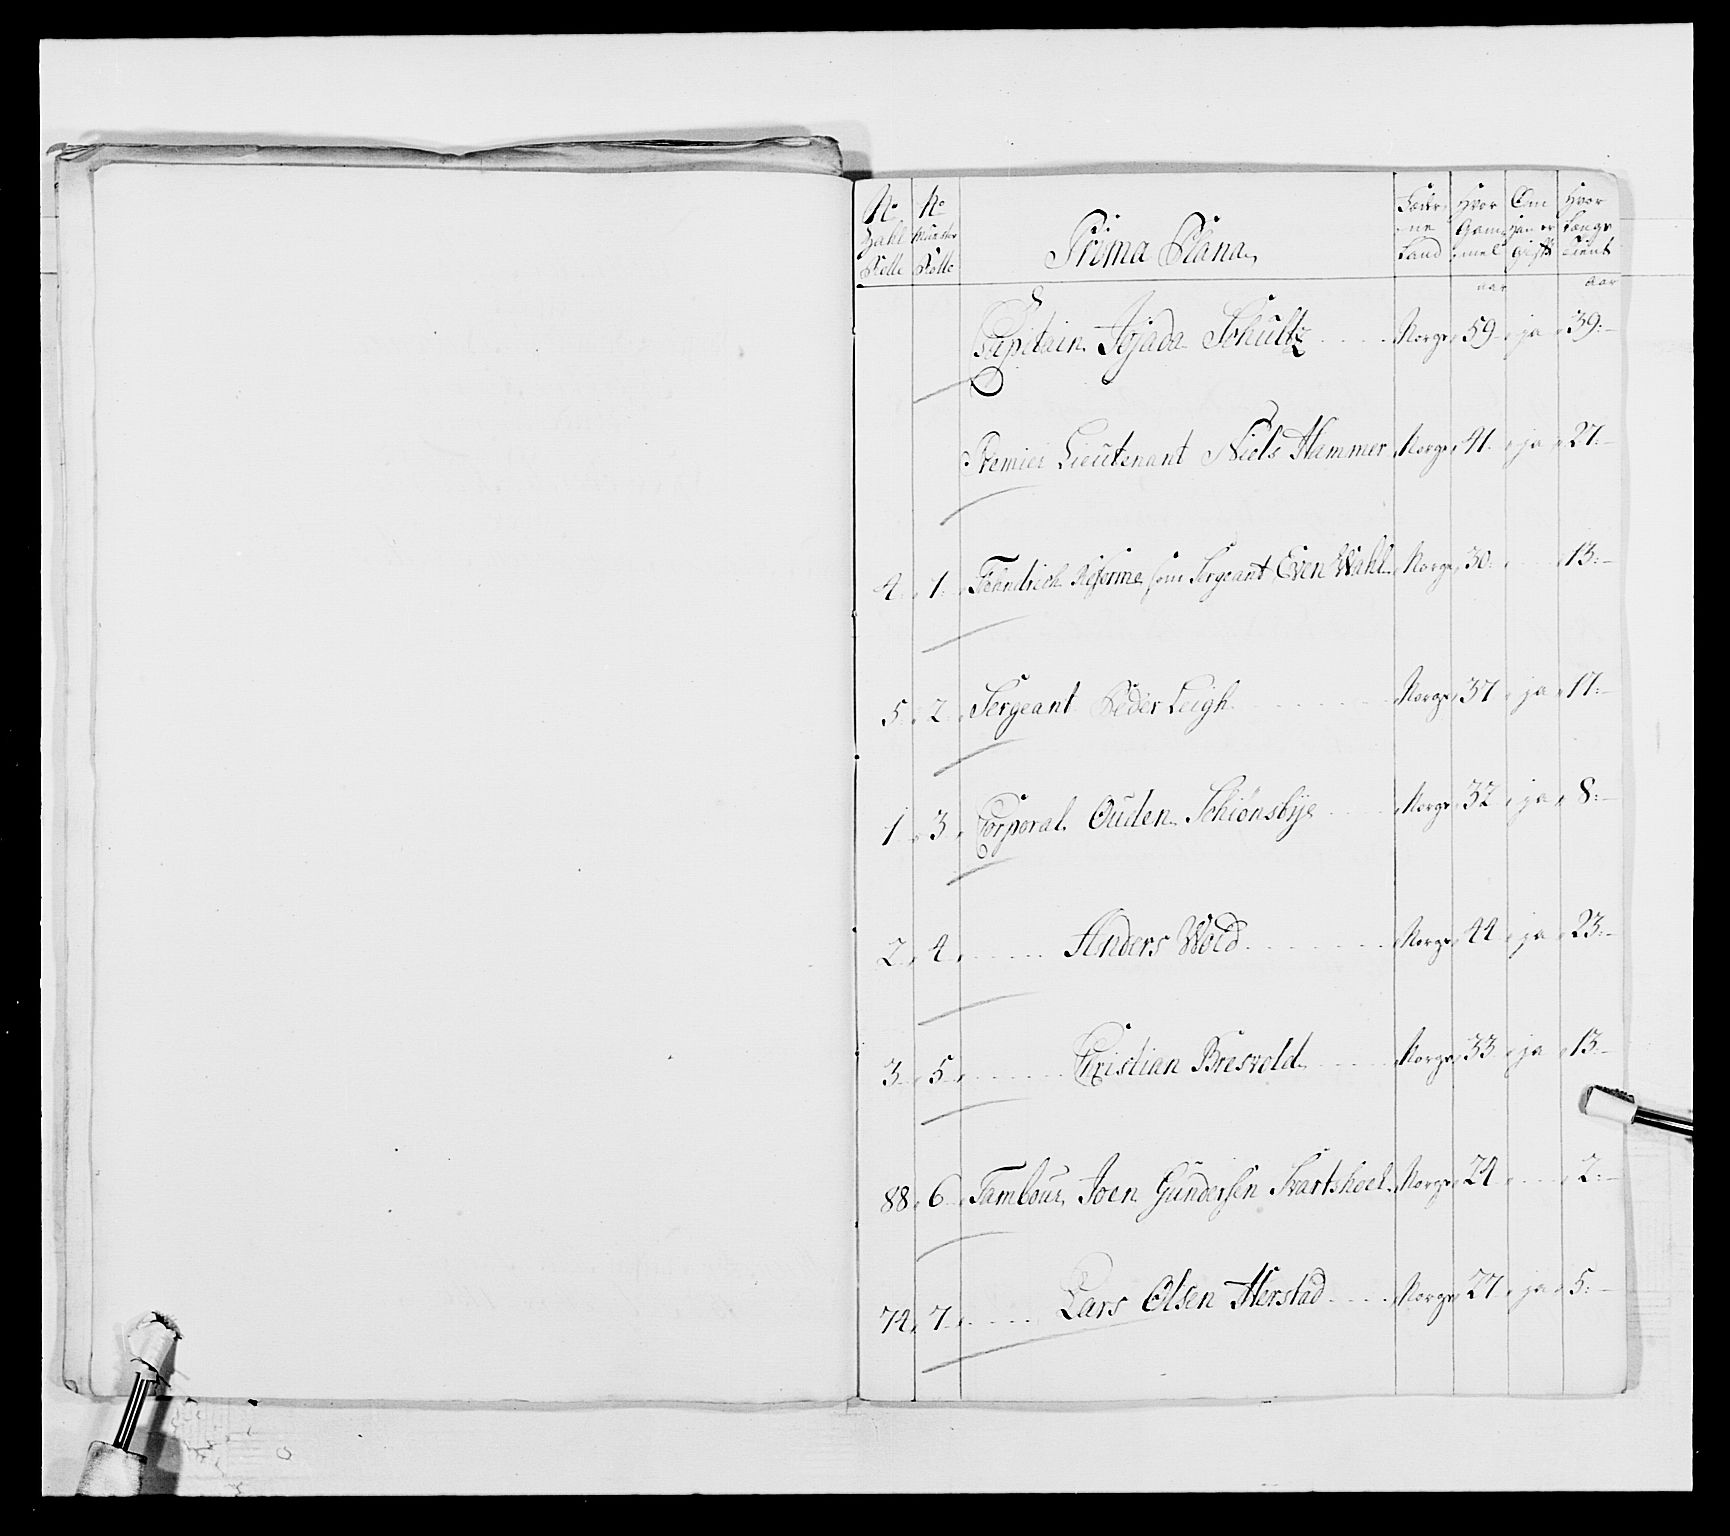 No Zahl Rolle | No Münster Rolle | Prima Plana | Føde-ne Land | Hvor Gam-mel | Om han er gift | Hvor længe tient
aar | aar
Capitain Jojada Schultz | Norge | 59 | ja | 39:
Premier Lieutenant Niels Hammer | Norge | 41 | ja | 27:
4 | 1 | Fendrich Reforme som Sergeant Even Wahl | Norge | 30 | 13:
5 | 2 | Sergeant Peder Leigh | Norge | 37 | ja | 17:
1 | 3 | Corporal Ouden Schiønsbye | Norge | 32 | ja | 8:
2 | 4 | Anders Wold | Norge | 44 | ja | 23:
3 | 5 | Christian Bresvold | Norge | 33 | ja | 13
88 | 6 | Tambour Joen Gundersen Svartshoel | Norge | 24 | 2:
74 | 7 | Lars Olsen Herstad | Norge | 27 | ja | 5: